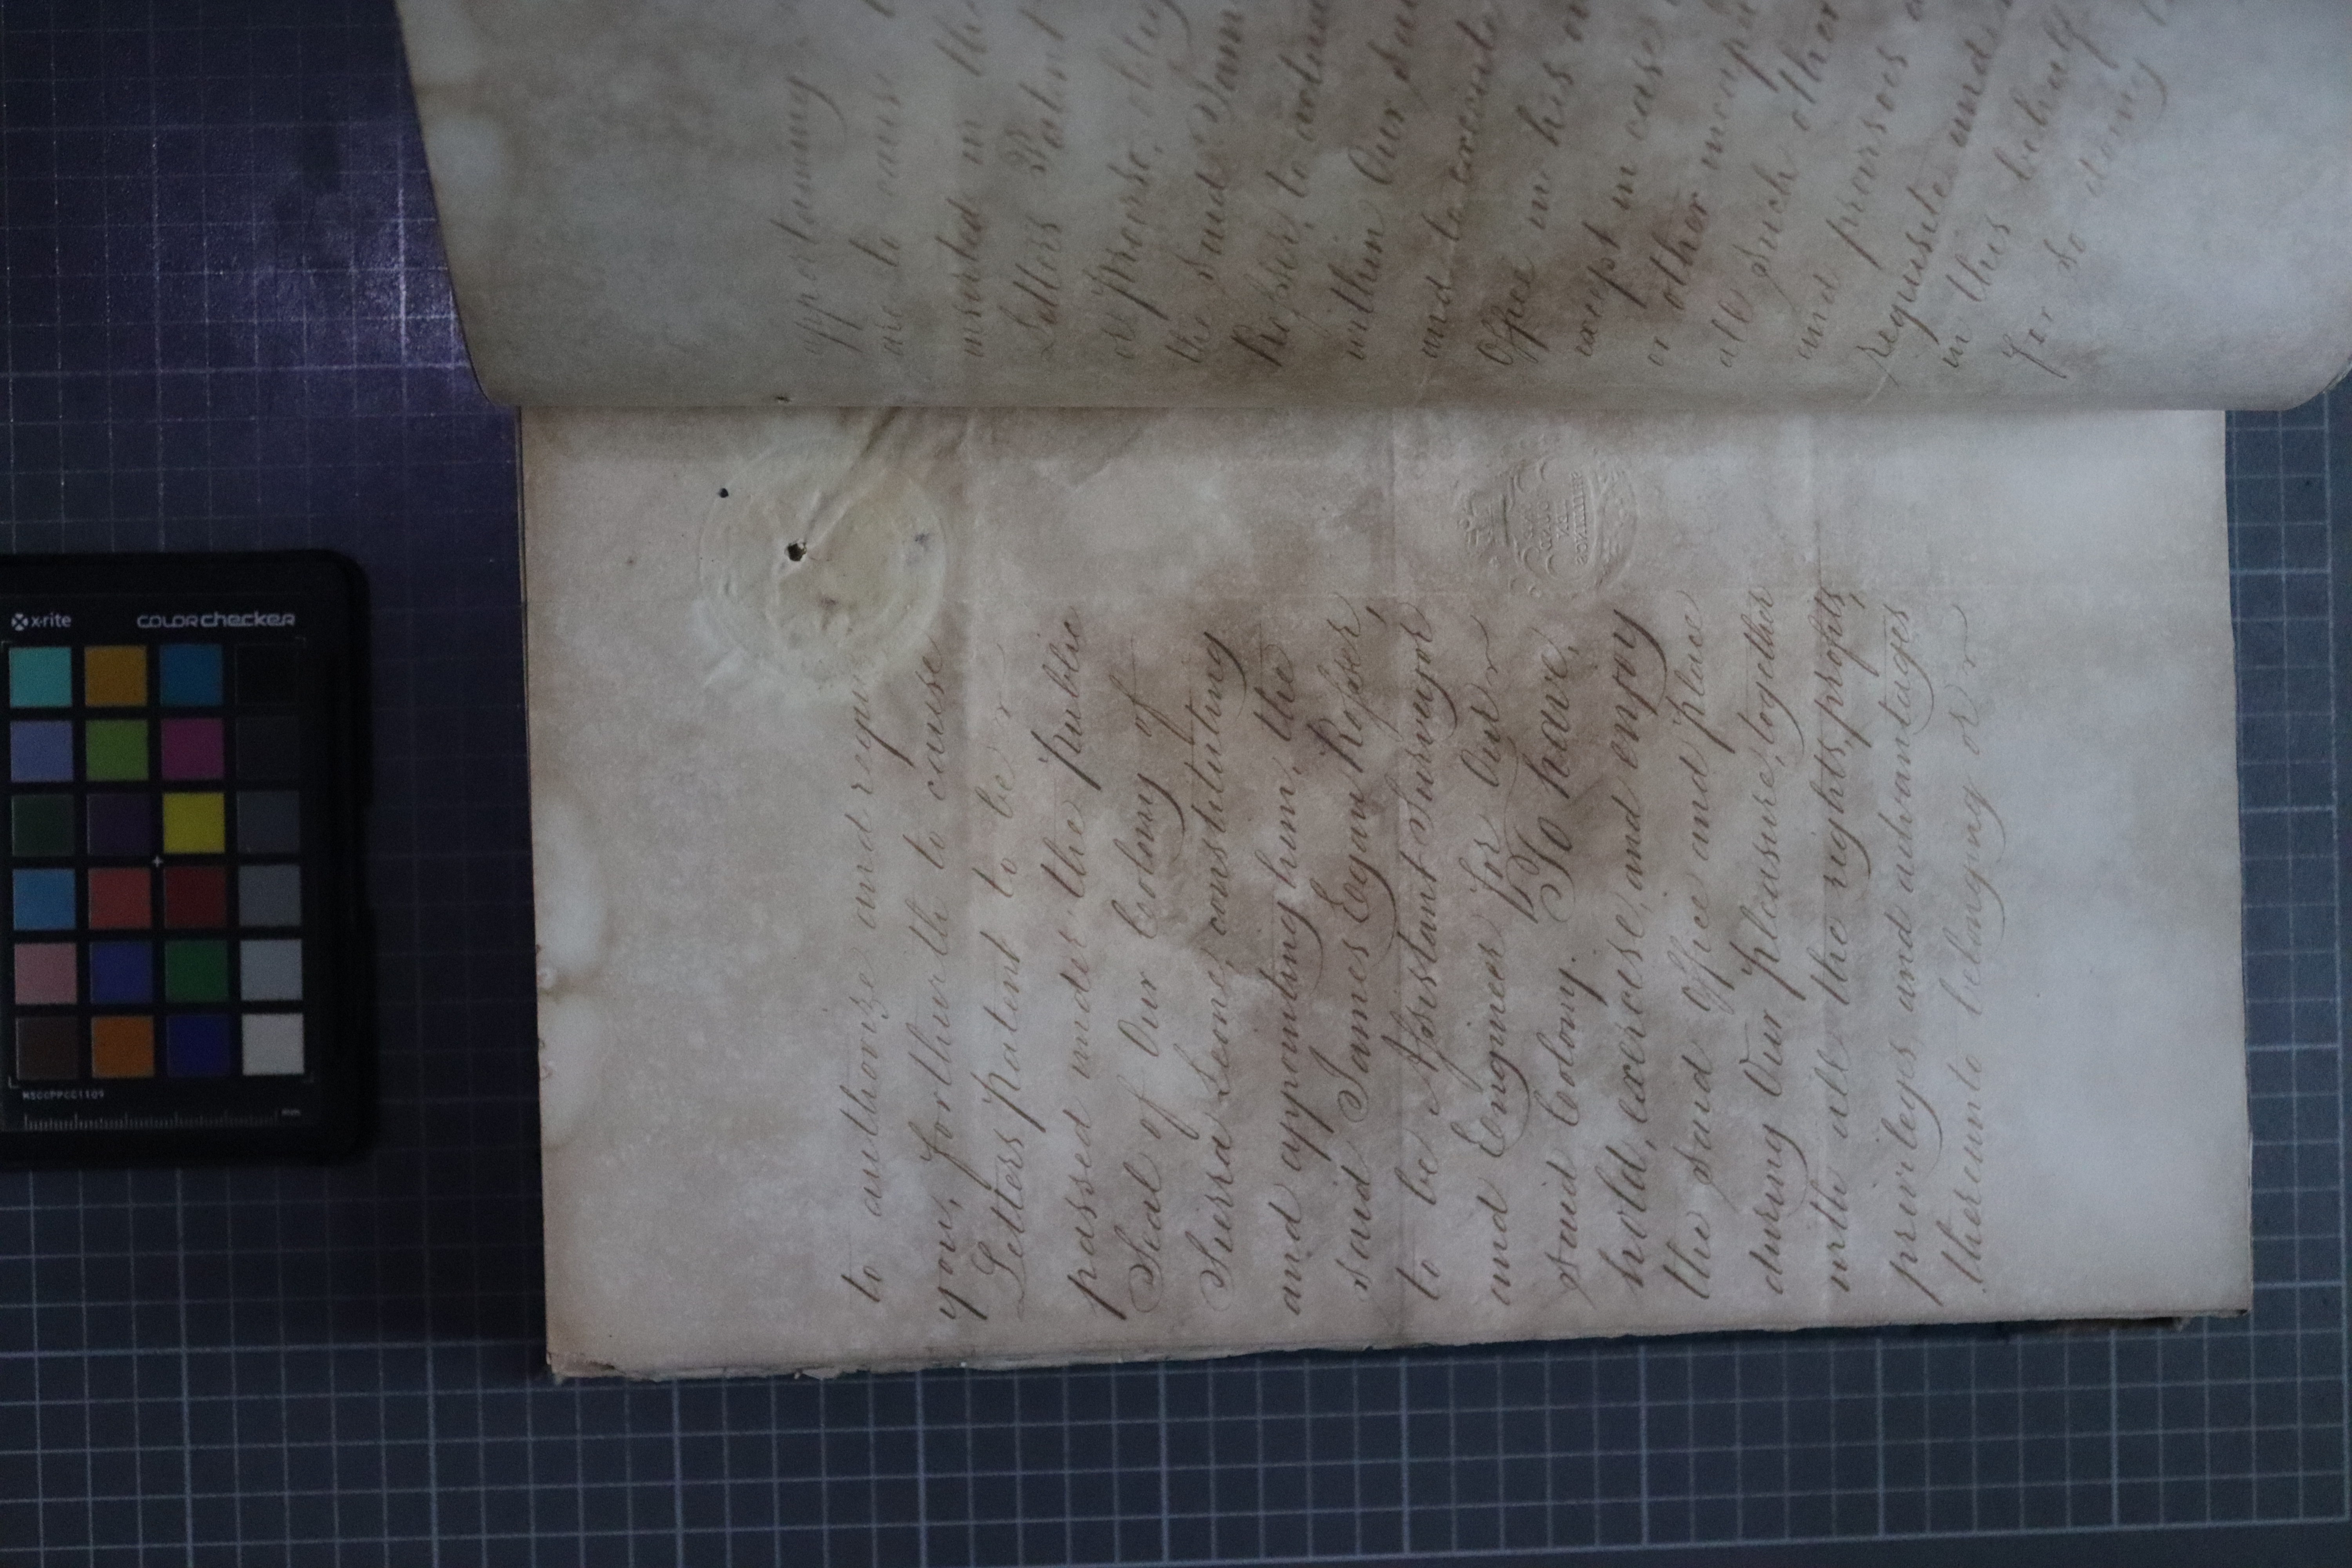 to authorize and require
you, forthwith to cause
Letters patent to be
passed under the public
Seal of Our Colony of
Sierra Leone, constituting
and appointing him, the
said James Egan Rosser,
to be Assistant Surveyor
and Engineer for Our
said Colony. To have,
hold, exercise, and enjoy
the said Office and place
during Our pleasure, together
with all the rights, profits,
privileges, and advantages
thereunto belonging or
appertaining
are to cause
inserted in the
Letters Patent
the said James
Rosser, to
within Our said
and to execute
Office in his
except in case
or other
all such other
and provisoes
requisite and
in this behalf
for so doing
x-rite
colorchecker
MSCCPPCC1109
mm